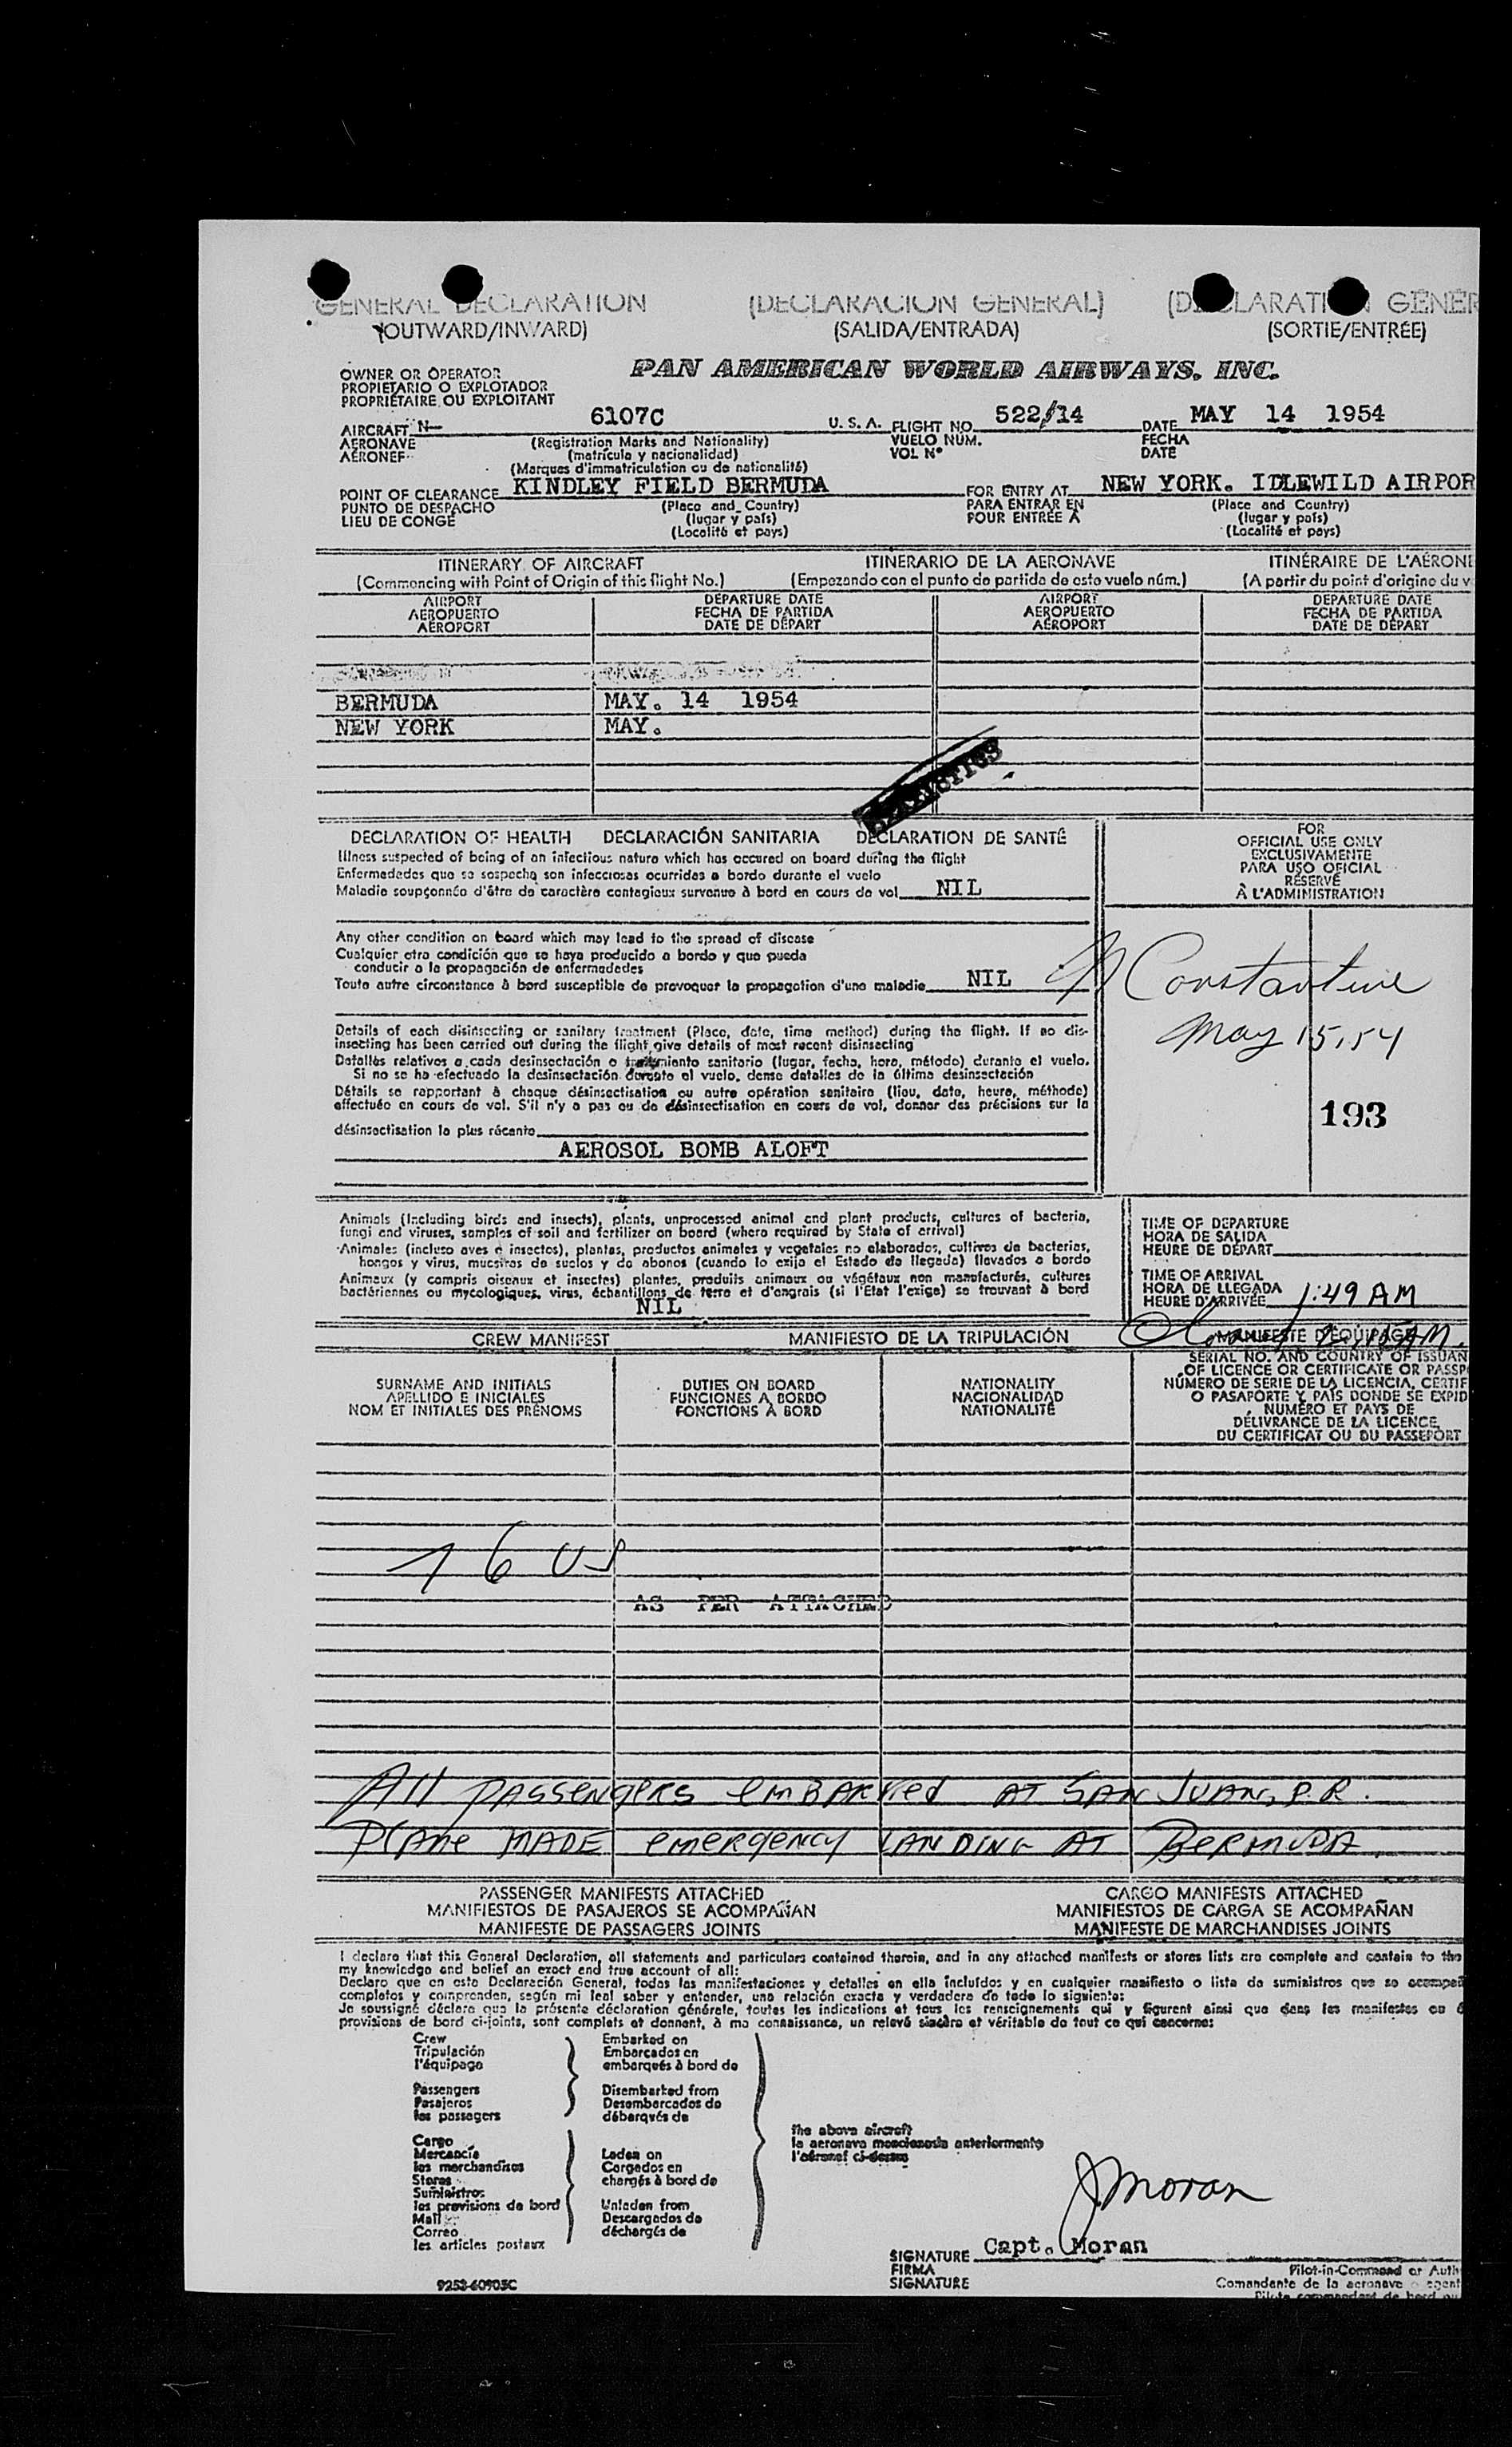 GENERAL DECLARATION (DECLARACION GENERAL)
(OUTWARD/INWARD) (SALIDA/ENTRADA) (SORTIE/ENTRÉE)
PAN AMERICAN WORLD AIRWAYS, INC.
OWNER OR OPERATOR
PROPIETARIO O EXPLOTADOR
PROPRIÉTAIRE OU EXPLOITANT
AIRCRAFT N- 6107C U. S. A. FLIGHT NO. 522/14 DATE MAY 14 1954
AERONAVE (Registration Marks and Nationality) VUELO NÚM. FECHA
AÉRONEF (matrícula y nacionalidad) VOL Nº DATE
(Marques d'immatriculation ou de nationalité)
POINT OF CLEARANCE KINDLEY FIELD BERMUDA FOR ENTRY AT NEW YORK. IDLEWILD AIRPOR
PUNTO DE DESPACHO (Place and Country) PARA ENTRAR EN (Place and Country)
LIEU DE CONGÉ (lugar y país) POUR ENTRÉE À (lugar y país)
(Localité et pays) (Localité et pays)
ITINERARY OF AIRCRAFT ITINERARIO DE LA AERONAVE ITINÉRAIRE DE L'AÉRONE
(Commencing with Point of Origin of this flight No.) (Empezando con el punto de partida de este vuelo núm.) (A partir du point d'origine du v
AIRPORT DEPARTURE DATE AIRPORT DEPARTURE DATE
AEROPUERTO FECHA DE PARTIDA AEROPUERTO FECHA DE PARTIDA
AÉROPORT DATE DE DÉPART AÉROPORT DATE DE DÉPART
BERMUDA MAY. 14 1954
NEW YORK MAY.
DECLARATION OF HEALTH DECLARACIÓN SANITARIA DECLARATION DE SANTÉ
Illness suspected of being of an infectious nature which has occured on board during the flight
Enfermedades que se sospecha son infecciosas ocurridas a bordo durante el vuelo
Maladie soupçonnée d'être de caractère contagieux survenue à bord en cours de vol NIL
FOR
OFFICIAL USE ONLY
EXCLUSIVAMENTE
PARA USO OFICIAL
RÉSERVÉ
À L'ADMINISTRATION
Any other condition on board which may lead to the spread of disease
Cualquier otra condición que se haya producido a bordo y que pueda
conducir a la propagación de enfermedades
Toute autre circonstance à bord susceptible de provoquer la propagation d'une maladie NIL
Constantine
May 15, 54
193
Details of each disinsecting or sanitary treatment (Place, date, time method) during the flight. If no dis-
insecting has been carried out during the flight give details of most recent disinsecting
Detalles relativos a cada desinsectación o tratamiento sanitario (lugar, fecha, hora, método) durante el vuelo.
Si no se ha efectuado la desinsectación durante el vuelo, dense detalles de la última desinsectación
Détails se rapportant à chaque désinsectisation ou autre opération sanitaire (lieu, date, heure, méthode)
effectuée en cours de vol. S'il n'y a pas eu de désinsectisation en cours de vol, donner des précisions sur la
désinsectisation la plus récente
AEROSOL BOMB ALOFT
Animals (Including birds and insects), plants, unprocessed animal and plant products, cultures of bacteria,
fungi and viruses, samples of soil and fertilizer on board (where required by State of arrival)
Animales (incluso aves e insectos), plantas, productos animales y vegetales no elaborados, cultivos de bacterias,
hongos y virus, muestras de suelos y de abonos (cuando lo exija el Estado de llegada) llevados a bordo
Animaux (y compris oiseaux et insectes) plantes, produits animaux ou végétaux non manufacturés, cultures
bactériennes ou mycologiques, virus, échantillons de terre et d'engrais (si l'Etat l'exige) se trouvant à bord
NIL
TIME OF DEPARTURE
HORA DE SALIDA
HEURE DE DÉPART
TIME OF ARRIVAL
HORA DE LLEGADA
HEURE D'ARRIVÉE 1:49 AM
CREW MANIFEST MANIFIESTO DE LA TRIPULACIÓN MANIFESTE D'ÉQUIPAGE
SURNAME AND INITIALS
APELLIDO E INICIALES
NOM ET INITIALES DES PRÉNOMS
DUTIES ON BOARD
FUNCIONES A BORDO
FONCTIONS À BORD
NATIONALITY
NACIONALIDAD
NATIONALITÉ
SERIAL NO. AND COUNTRY OF ISSUAN
OF LICENCE OR CERTIFICATE OR PASSP
NÚMERO DE SERIE DE LA LICENCIA, CERTIF
O PASAPORTE Y PAÍS DONDE SE EXPID
NUMÉRO ET PAYS DE
DÉLIVRANCE DE LA LICENCE,
DU CERTIFICAT OU DU PASSEPORT
16 US
AS PER ATTACHED
All passengers embarked at San Juan, P.R.
Plane made emergency landing at Bermuda.
PASSENGER MANIFESTS ATTACHED CARGO MANIFESTS ATTACHED
MANIFIESTOS DE PASAJEROS SE ACOMPAÑAN MANIFIESTOS DE CARGA SE ACOMPAÑAN
MANIFESTE DE PASSAGERS JOINTS MANIFESTE DE MARCHANDISES JOINTS
I declare that this General Declaration, all statements and particulars contained therein, and in any attached manifests or stores lists are complete and contain to the
my knowledge and belief an exact end true account of all:
Declaro que en esta Declaración General, todas las manifestaciones y detalles en ella incluídos y en cualquier manifiesto o lista de suministros que se acompañ
completos y comprenden, según mi leal saber y entender, una relación exacta y verdadera de todo lo siguiente:
Je soussigné déclare que la présente déclaration générale, toutes les indications et tous les renseignements qui y figurent ainsi que dans les manifestes ou
provisions de bord ci-joints, sont complets et donnent, à ma connaissance, un relevé sincère et véritable de tout ce qui concerne:
Crew
Tripulación
l'équipage
Passengers
Pasajeros
les passagers
Cargo
Mercancía
les marchandises
Stores
Suministros
les provisions de bord
Mail
Correo
les articles postaux
Embarked on
Embarcados en
embarqués à bord de
Disembarked from
Desembarcados de
débarqués de
Laden on
Cargados en
chargés à bord de
Unladen from
Descargados de
déchargés de
the above aircraft
la aeronave mencionada anteriormente
l'aéronef ci-dessus
J Moran
SIGNATURE Capt. Moran
FIRMA
SIGNATURE
Pilot-in-Command or Auth
Comandante de la aeronave o agent
Pilote commandant de bord ou
9253-60905C